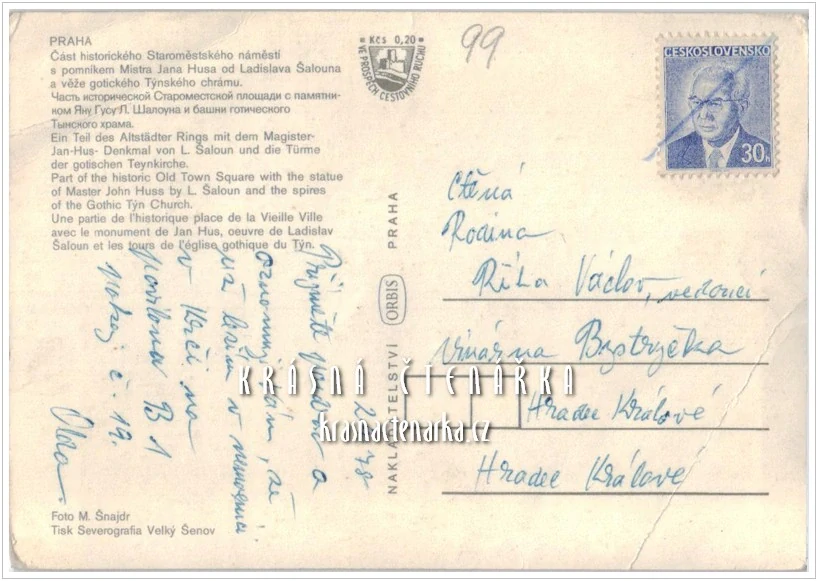 PRAHA
Část historického Staroměstského náměstí
s pomníkem Mistra Jana Husa od Ladislava Šalouna
a věže gotického Týnského chrámu.
Часть исторической Староместской площади с памятни-
ком Яну Гусу Л. Шалоуна и башни готического
Тынского храма.
Ein Teil des Altstädter Rings mit dem Magister-
Jan-Hus- Denkmal von L. Šaloun und die Türme
der gotischen Teynkirche.
Part of the historic Old Town Square with the statue
of Master John Huss by L. Šaloun and the spires
of the Gothic Týn Church.
Une partie de l'historique place de la Vieille Ville
avec le monument de Jan Hus, oeuvre de Ladislav
Šaloun et les tours de l'église gothique du Týn.
Kčs 0,20
VE PROSPĚCH CESTOVNÍHO RUCHU
99
ČESKOSLOVENSKO
30h
Čtená
Rodina
Říha Václav, vedoucí
Vinárna Bystrička
Hradec Králové
Hradec Králové
78
Přijměte a
že
v
v Krči na
pavilonu B 1
pokoj č. 19.
Olda
NAKLADATELSTVÍ ORBIS PRAHA
KRÁSNÁ ČTENÁŘKA
krasnactenarka.cz
Foto M. Šnajdr
Tisk Severografia Velký Šenov